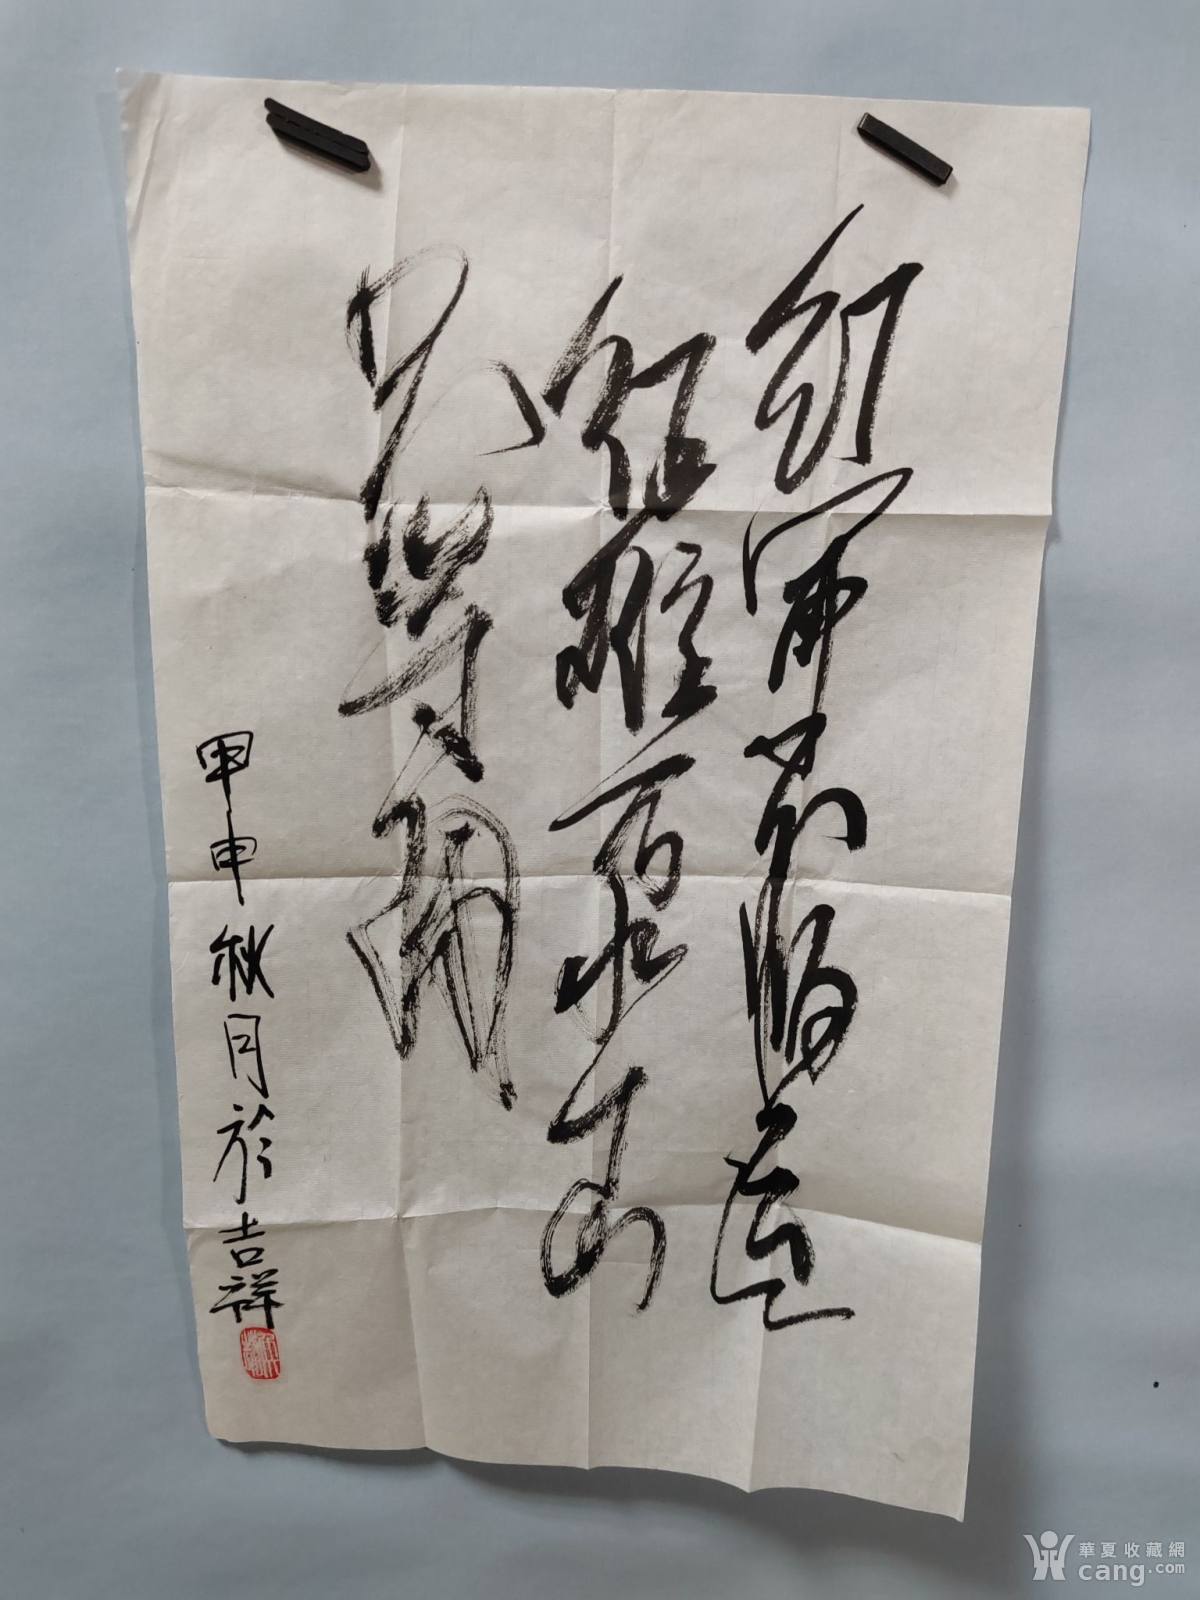 紅軍不怕遠
征難万水千
山只等閒
甲申秋月於吉祥
華夏收藏網
cang.com